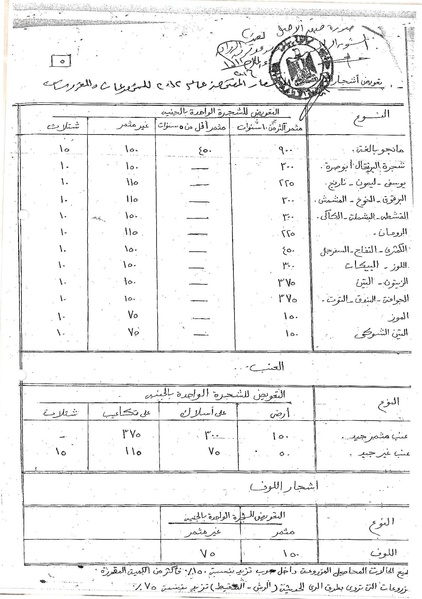 صورة طبق الأصل
٥
تعويض أشجار
النوع
التعويض للشجرة الواحدة بالجنيه
مثمر أكثر من ٥ سنوات
مثمر أقل من ٥ سنوات
غير مثمر
شتلات
مانجو بالغة ٩٠٠ ٤٥٠ ١٥٠ ١٥
شجرة البرتقال أبوصرة ٣٠٠ — ١٥٠ ١٠
يوسفى - ليمون - نارنج ٢٢٥ — ١١٥ ١٠
البرقوق - الخوخ - المشمش ٣٠٠ — ١١٥ ١٠
القشطه - البشملة - الكاكى ٣٠٠ — ١٥٠ ١٠
الرومان ٢٢٥ — ١١٥ ١٠
الكمثرى - التفاح - السفرجل ٤٥٠ — ١٥٠ ١٠
اللوز - البيكان ٣٠٠ — ١٥٠ ١٠
الزيتون - التين ٣٧٥ — ١٥٠ ١٠
الجوافة - البندق - التوت ٣٧٥ — ١٥٠ ١٠
الموز ١٥٠ — ٧٥ ١٠
التين الشوكى ١٥٠ — ٧٥ ١٠
العنب
النوع
التعويض للشجرة الواحدة بالجنيه
أرضى على أسلاك على تكاعيب شتلات
عنب مثمر جيد ١٥٠ ٣٠٠ ٣٧٥ -
عنب غير جيد ٥٠ ٧٥ ١١٥ ١٥
أشجار اللوف
النوع
التعويض للشجرة الواحدة بالجنيه
مثمر غير مثمر
اللوف ١٥٠ ٧٥
المحاصيل المزروعة داخل صوب تزيد بنسبة ١٥٠٪
تروى بطرق الرى الحديثة (الرش - التنقيط) تزيد بنسبة ٧٥٪